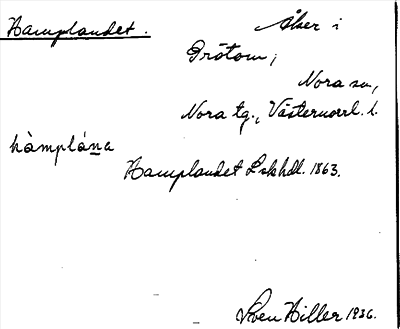 Hamplandet. Åker i
Prästom;
Nora sn,
Nora tg., Västernorrl. l.
hàmplána
Hamplandet Lskhdl. 1863.
Sven Hiller 1936.